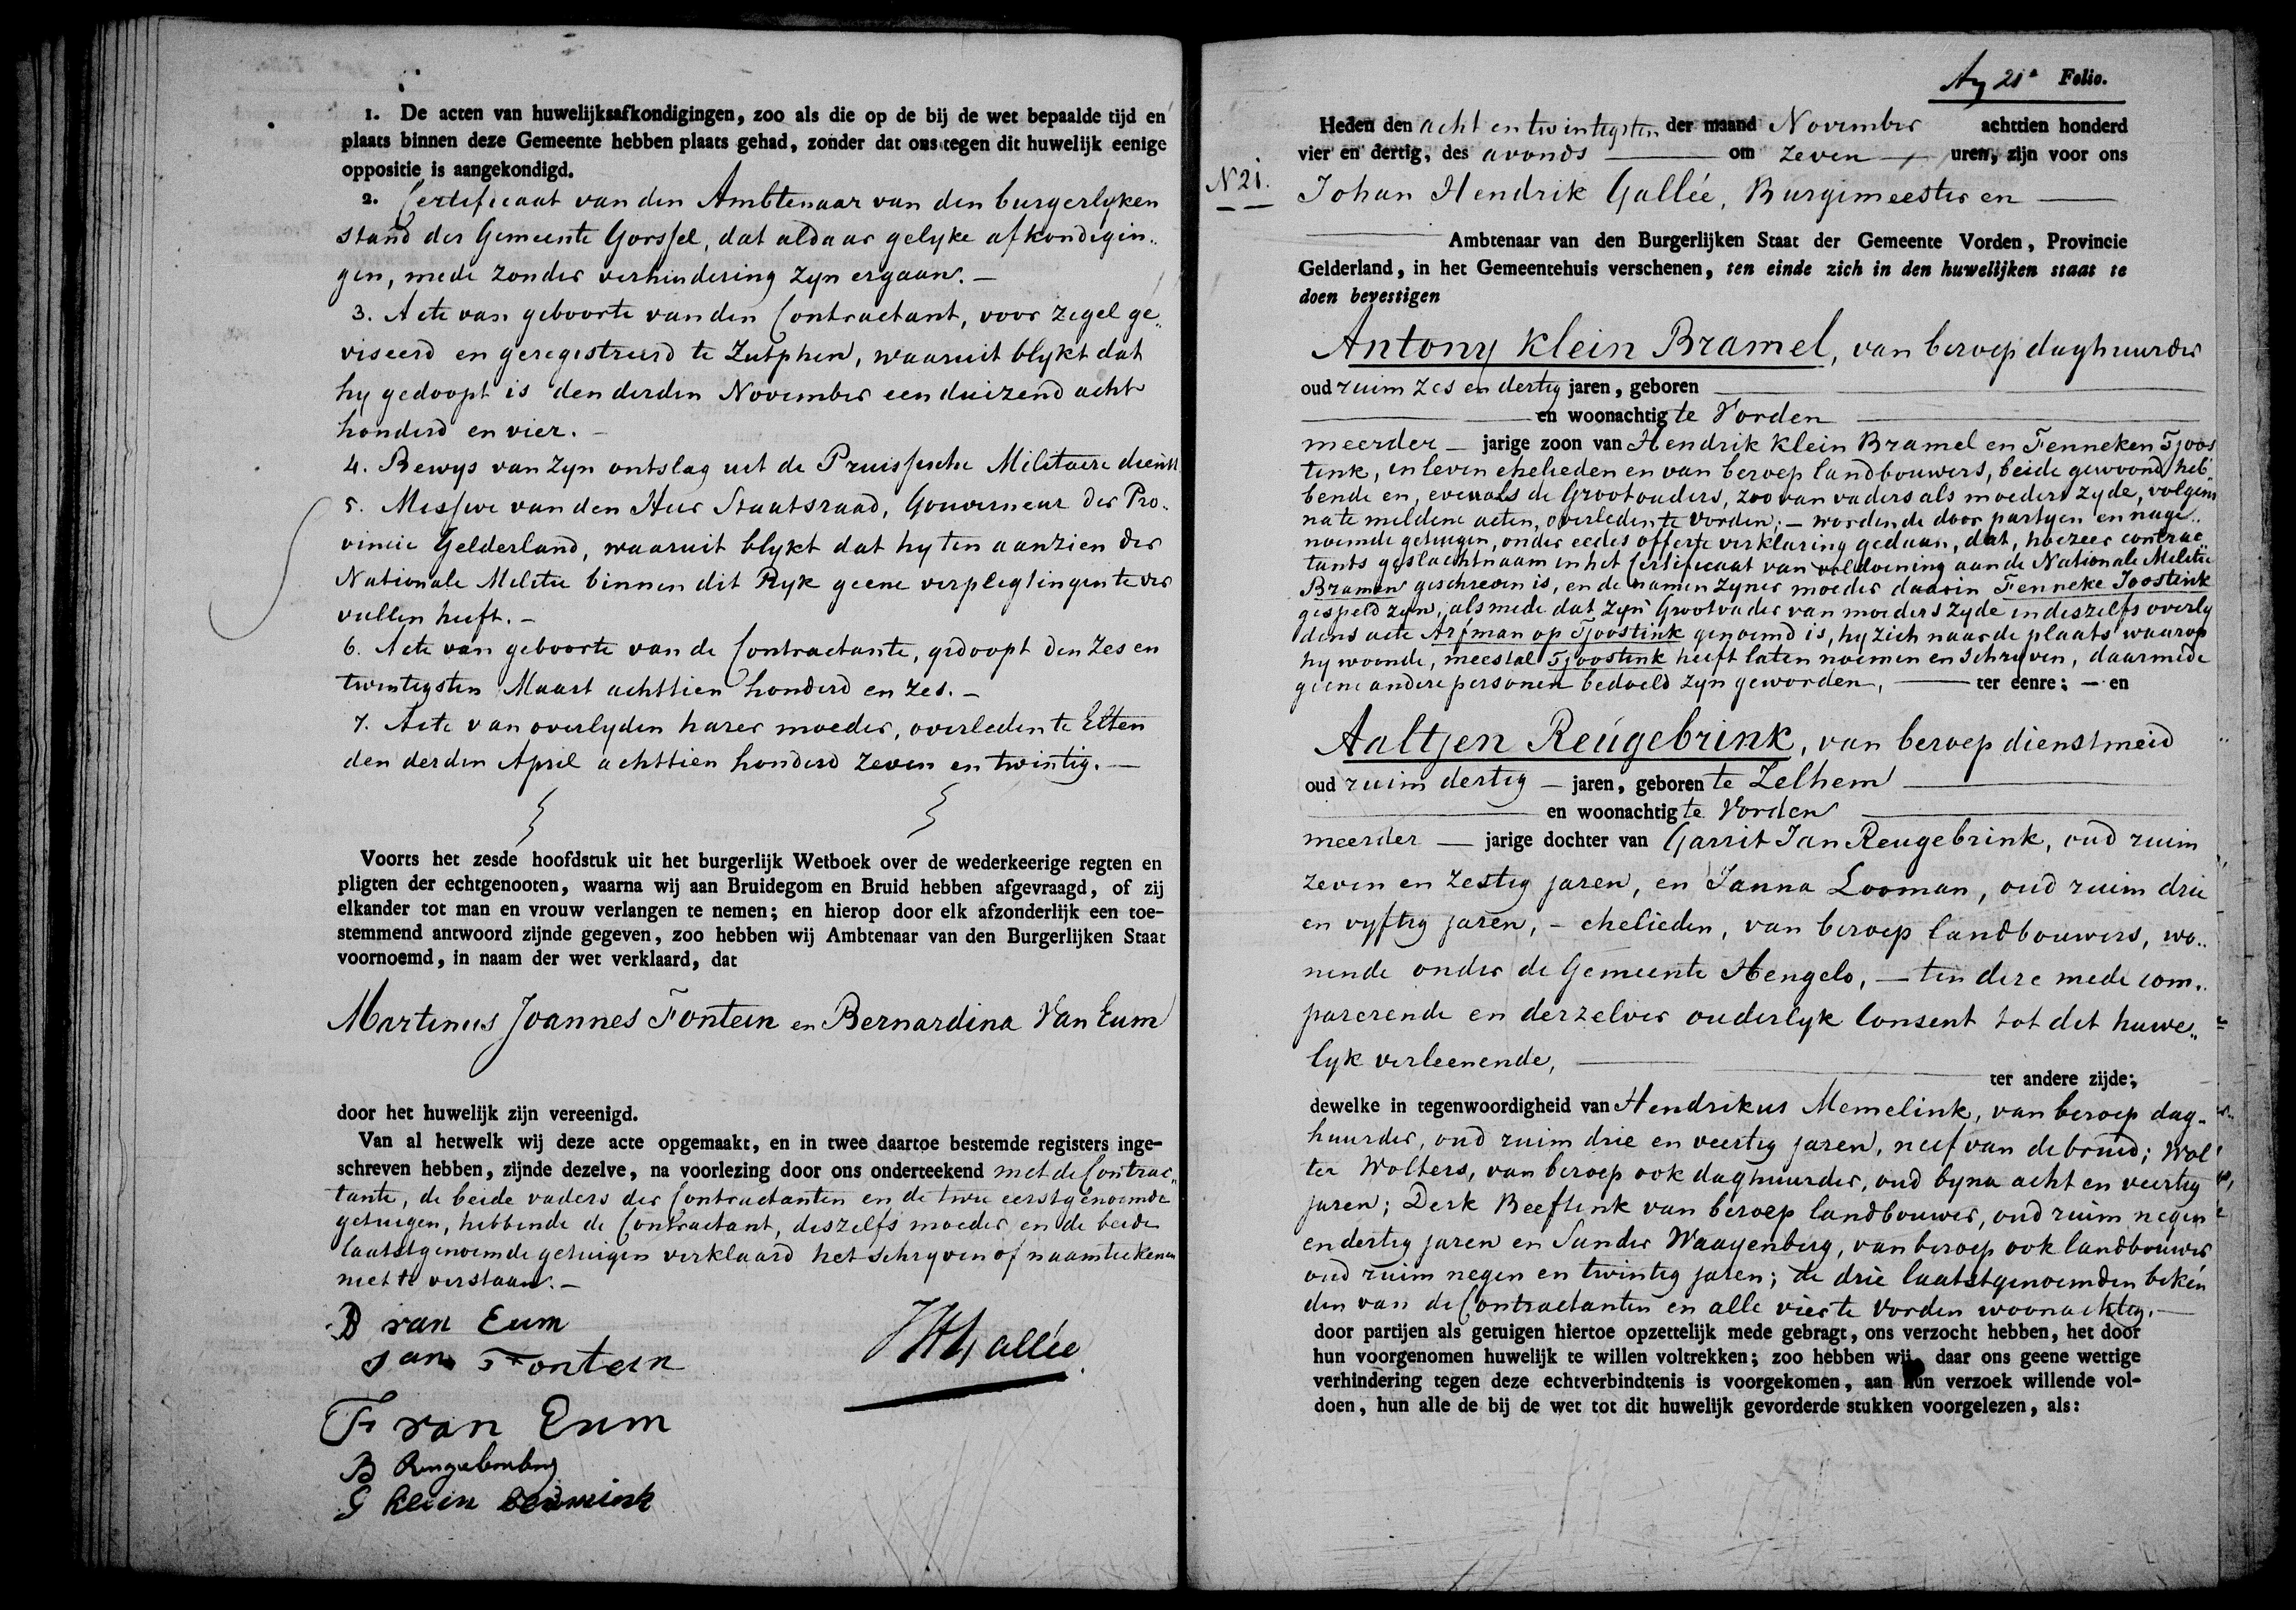 1. De acten van huwelijksafkondigingen, zoo als die op de bij de wet bepaalde tijd en
plaats binnen deze Gemeente hebben plaats gehad, zonder dat ons tegen dit huwelijk eenige
oppositie is aangekondigd.
2. Certificaat van den Ambtenaar van den burgerlyken
stand der Gemeente Gorssel, dat aldaar gelyke afkondigin„
gen, mede zonder verhindering zyn ergaan. —
3. Acte van geboorte van den Contractant, voor zegel ge„
viseerd en geregistreerd te Zutphen, waaruit blykt dat
hy gedoopt is den derden November een duizend acht
honderd en vier. —
4. Bewys van zyn ontslag uit de Pruissische Militaire dienst
5. Missive van den Heer Staatsraad, Gouverneur der Pro„
vincie Gelderland, waaruit blykt dat hy ten aanzien der
Nationale Militie binnen dit Ryk geene verpligtingen te ver
vullen heeft. —
6. Acte van geboorte van de Contractante, gedoopt den zes en
twintigsten Maart achttien honderd en zes. —
7. Acte van overlyden harer moeder, overleden te Etten
den derden April achttien honderd zeven en twintig. —
Voorts het zesde hoofdstuk uit het burgerlijk Wetboek over de wederkeerige regten en
pligten der echtgenooten, waarna wij aan Bruidegom en Bruid hebben afgevraagd, of zij
elkander tot man en vrouw verlangen te nemen; en hierop door elk afzonderlijk een toe-
stemmend antwoord zijnde gegeven, zoo hebben wij Ambtenaar van den Burgerlijken Staat
voornoemd, in naam der wet verklaard, dat
Martinus Joannes Fontein en Bernardina Van Eum
door het huwelijk zijn vereenigd.
Van al hetwelk wij deze acte opgemaakt, en in twee daartoe bestemde registers inge-
schreven hebben, zijnde dezelve, na voorlezing door ons onderteekend met de Contrac„
tante, de beide vaders der Contractanten en de twee eerstgenoemde
getuigen, hebbende de Contractant, deszelfs moeder en de beide
laatstgenoemde getuigen verklaard het schryven of naamteekenen
niet te verstaan. —
B van Eum
Jan Fontein
JHGallée
F van Eum
B
G klein
Folio.
Heden den acht en twintigsten der maand November achttien honderd
vier en dertig, des avonds — om zeven — uren, zijn voor ons
N 21.
Johan Hendrik Gallée, Burgemeester en —
Ambtenaar van den Burgerlijken Staat der Gemeente Vorden, Provincie
Gelderland, in het Gemeentehuis verschenen, ten einde zich in den huwelijken staat te
doen bevestigen
Antony Klein Bramel, van beroep daghuurder
oud ruim zes en dertig jaren, geboren —
— en woonachtig te Vorden —
meerder — jarige zoon van Hendrik Klein Bramel en Fenneken Tjoos
tink, in leven ehelieden en van beroep landbouwers, beide gewoond heb„
bende en, evenals de Grootouders, zoo van vaders als moeders zyde, volgens
na te melden acten, overleden te Vorden; — wordende door partyen en nage„
noemde getuigen, onder eedes offerte verklaring gedaan, dat, hoezeer contrac„
tants geslachtnaam in het Certificaat van voldoening aan de Nationale Militie
Bramen geschreven is, en de namen zyner moeder daarin Fenneke Joostink
gespeld zyn, alsmede dat zyn Grootvader van moeders zyde in deszelfs overly
dens acte Arfman op Tjoostink genoemd is, hy zich naar de plaats waarop
hy woonde, meestal Tjoostink heeft laten noemen en schryven, daarmede
geene andere personen bedoeld zyn geworden, — ter eenre; — en
Aaltjen Reugebrink, van beroep dienstmeid
oud ruim dertig — jaren, geboren te Zelhem —
— en woonachtig te Vorden —
meerder — jarige dochter van Garrit Jan Reugebrink, oud ruim
zeven en zestig jaren, en Janna Looman, oud ruim drie
en vyftig jaren, — ehelieden, van beroep landbouwers, wo„
nende onder de Gemeente Hengelo, — ten dere mede com„
parerende en derzelver ouderlyk Consent tot dit huwe„
lyk verleenende, —
ter andere zijde;
dewelke in tegenwoordigheid van Hendrikus Memelink, van beroep dag-
huurder, oud ruim drie en veertig jaren, neef van de bruid; Wol
ter Wolters, van beroep ook daghuurder, oud byna acht en veertig
jaren; Derk Beeftink van beroep landbouwer, oud ruim negen
en dertig jaren en Sander Waayenberg, van beroep ook landbouwer
oud ruim negen en twintig jaren; de drie laatstgenoemden beken
den van de Contractanten en alle vier te Vorden woonachtig. —
door partijen als getuigen hiertoe opzettelijk mede gebragt, ons verzocht hebben, het door
hun voorgenomen huwelijk te willen voltrekken; zoo hebben wij, daar ons geene wettige
verhindering tegen deze echtverbindtenis is voorgekomen, aan hun verzoek willende vol-
doen, hun alle de bij de wet tot dit huwelijk gevorderde stukken voorgelezen, als: